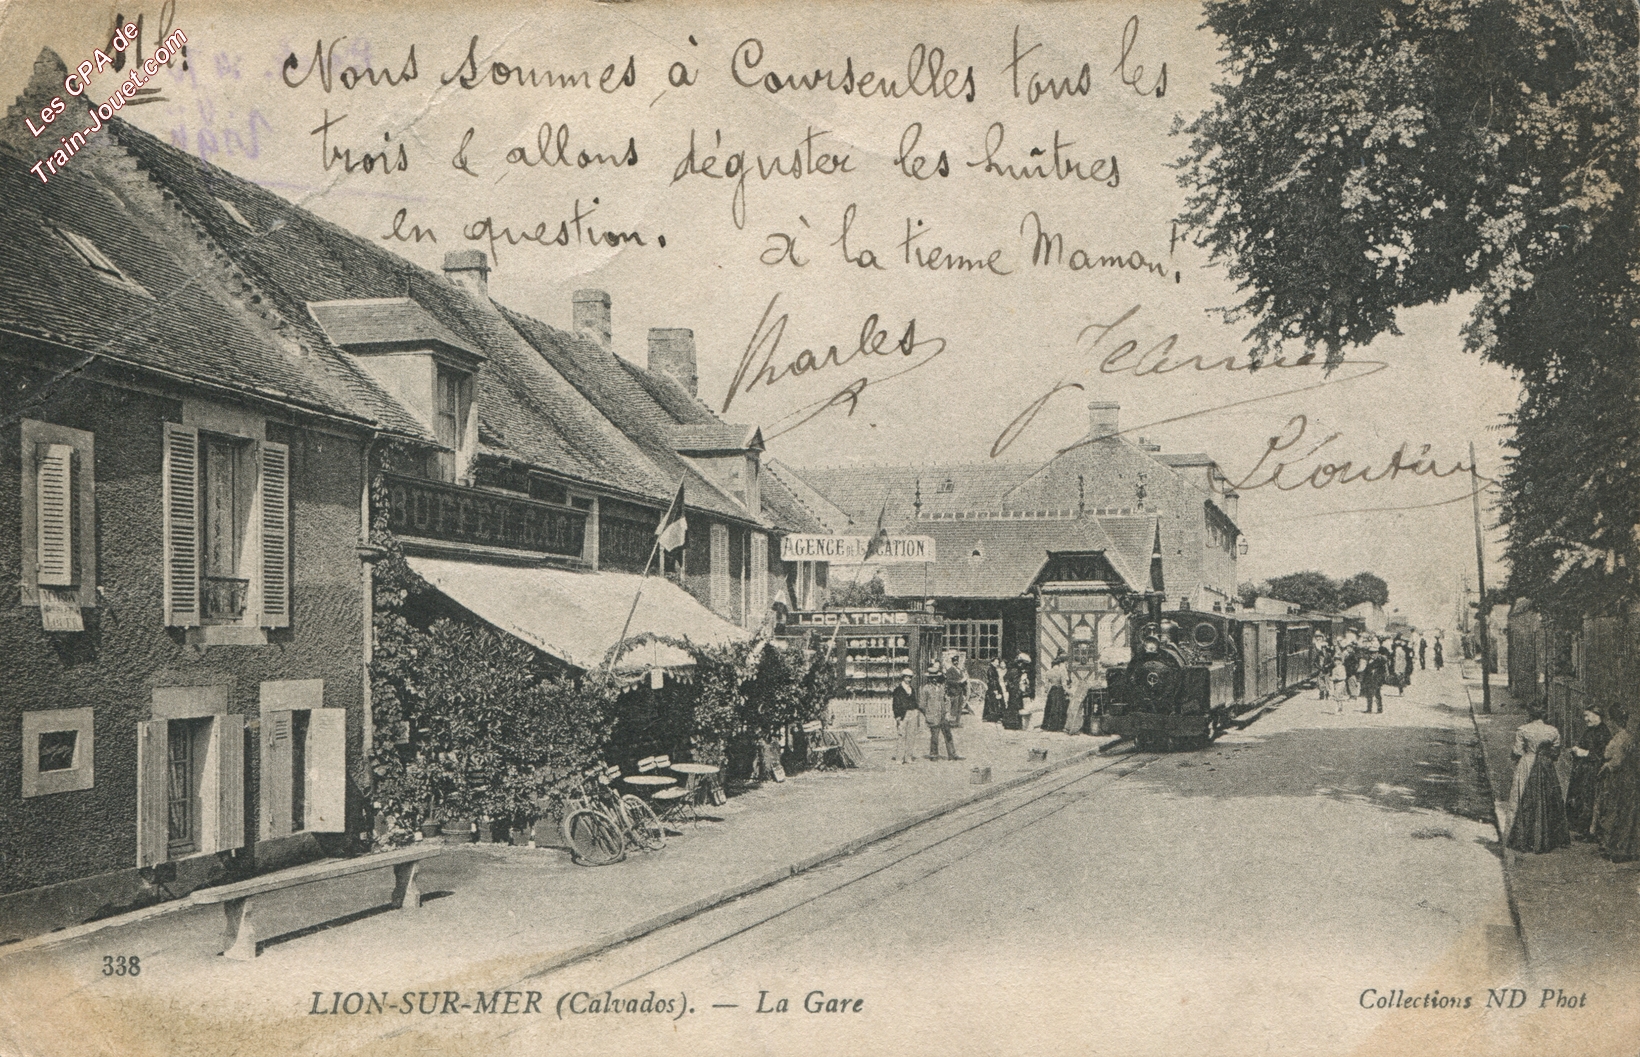 Les CPA de
Train-Jouet.com
Nous sommes à Courseulles tous les
trois & allons déguster les huîtres
en question.
à la tienne Maman!
Charles
Jeanne
Léontine
BUFFET
AGENCE DE LOCATION
LOCATIONS
338
LION-SUR-MER (Calvados). — La Gare
Collections ND Phot